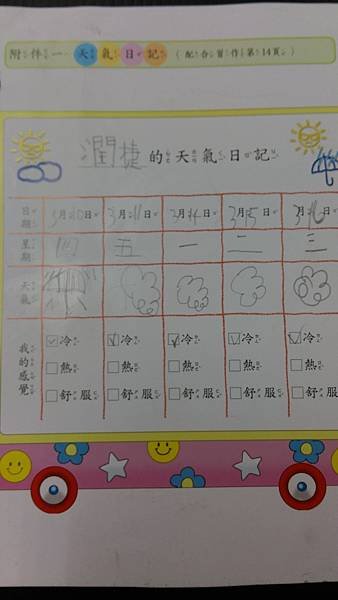 附件一 天氣日記 (配合習作第14頁)
潤捷的天氣日記
日期 3月10日 3月11日 3月14日 3月15日 3月16日
星期 四 五 一 二 三
天氣
我的感覺
冷 冷 冷 冷 冷
熱 熱 熱 熱 熱
舒服 舒服 舒服 舒服 舒服